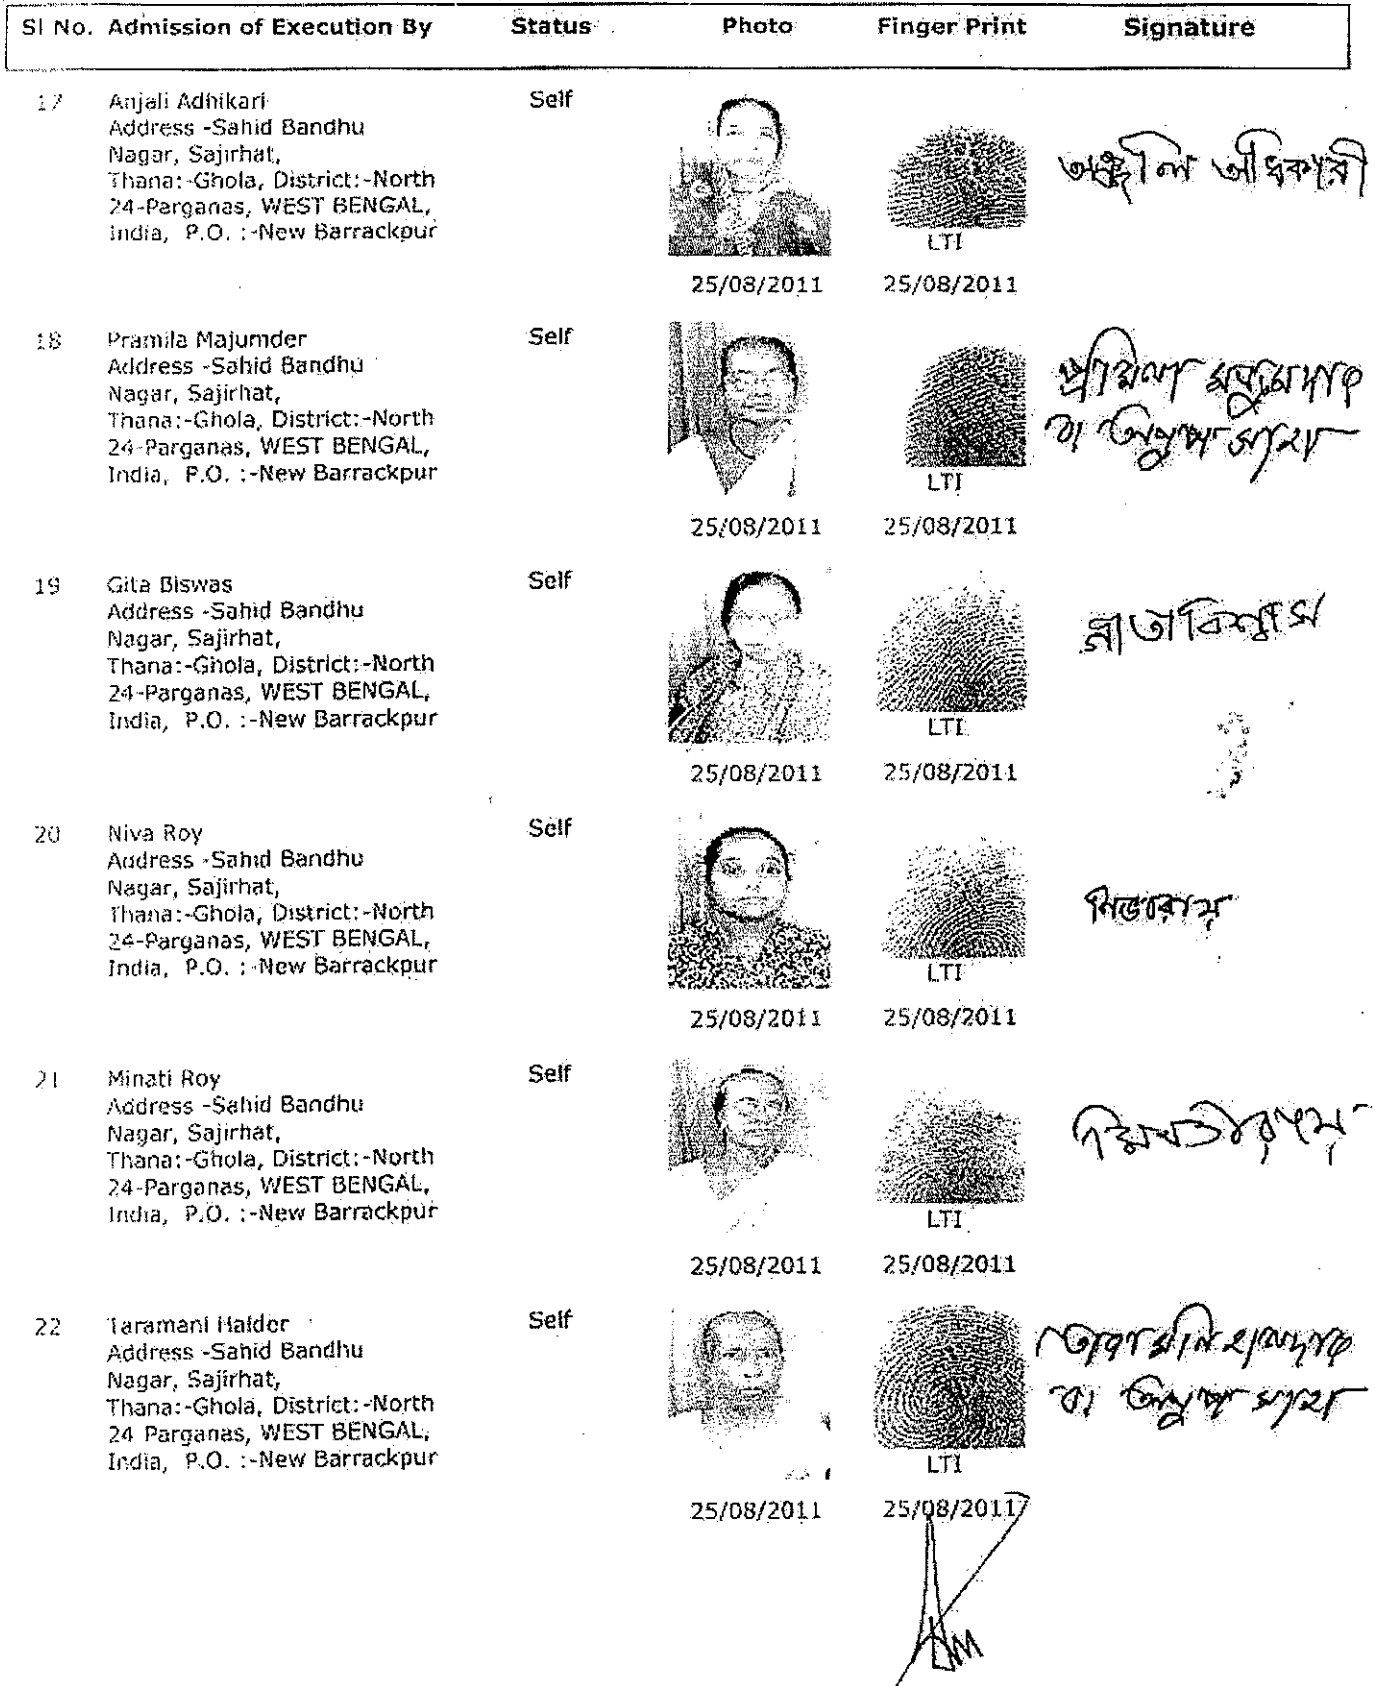 Sl No. Admission of Execution By Status Photo Finger Print Signature
17 Anjali Adhikari Self
Address -Sahid Bandhu
Nagar, Sajirhat,
Thana:-Ghola, District:-North
24-Parganas, WEST BENGAL,
India, P.O. :-New Barrackpur
অঞ্জলি অধিকারী
LTI
25/08/2011 25/08/2011
18 Pramila Majumder Self
Address -Sahid Bandhu
Nagar, Sajirhat,
Thana:-Ghola, District:-North
24-Parganas, WEST BENGAL,
India, P.O. :-New Barrackpur
প্রমিলা মজুমদার
LTI
25/08/2011 25/08/2011
19 Gita Biswas Self
Address -Sahid Bandhu
Nagar, Sajirhat,
Thana:-Ghola, District:-North
24-Parganas, WEST BENGAL,
India, P.O. :-New Barrackpur
গীতা বিশ্বাস
LTI
25/08/2011 25/08/2011
20 Niva Roy Self
Address -Sahid Bandhu
Nagar, Sajirhat,
Thana:-Ghola, District:-North
24-Parganas, WEST BENGAL,
India, P.O. :-New Barrackpur
নিভা রায়
LTI
25/08/2011 25/08/2011
21 Minati Roy Self
Address -Sahid Bandhu
Nagar, Sajirhat,
Thana:-Ghola, District:-North
24-Parganas, WEST BENGAL,
India, P.O. :-New Barrackpur
LTI
25/08/2011 25/08/2011
22 Taramani Halder Self
Address -Sahid Bandhu
Nagar, Sajirhat,
Thana:-Ghola, District:-North
24 Parganas, WEST BENGAL,
India, P.O. :-New Barrackpur
তারামনি হালদার
LTI
25/08/2011 25/08/2011